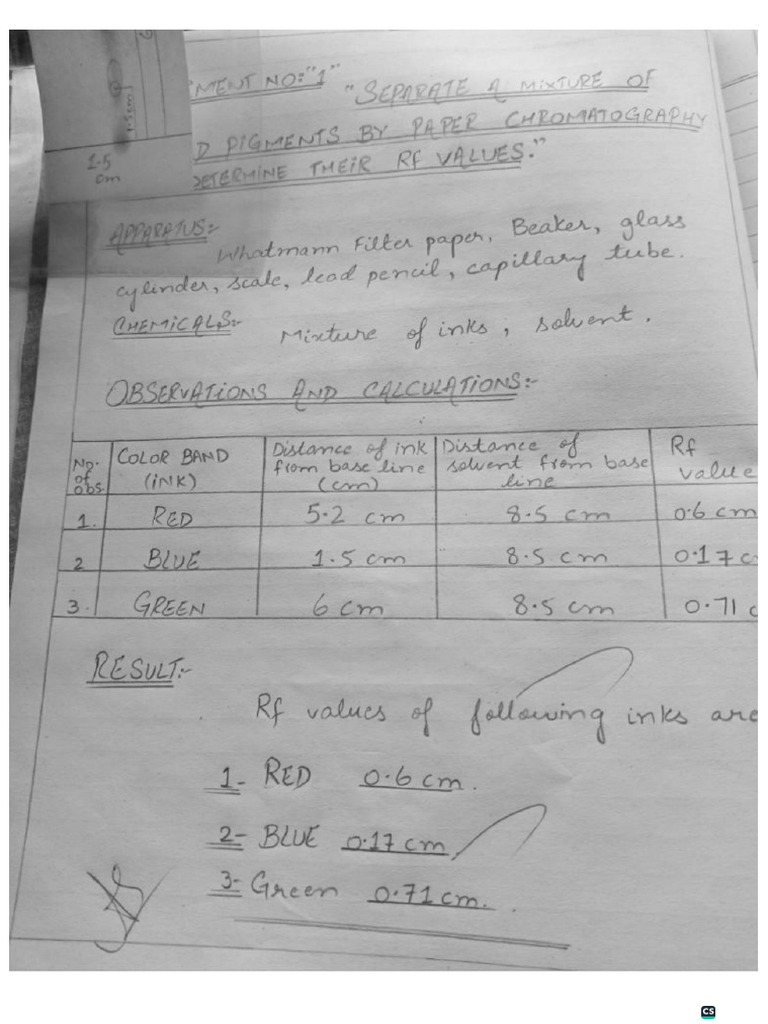 MENT NO:"1" "SEPARATE A MIXTURE OF
D PIGMENTS BY PAPER CHROMATOGRAPHY
DETERMINE THEIR RF VALUES."
1.5 cm
1.5
cm
APPARATUS:-
Whatmann Filter paper, Beaker, glass
cylinder, scale, lead pencil, capillary tube.
CHEMICALS:-
Mixture of inks, solvent.
OBSERVATIONS AND CALCULATIONS:-
No. of obs. COLOR BAND (INK) Distance of ink from base line (cm) Distance of solvent from base line Rf value
1. RED 5.2 cm 8.5 cm 0.6 cm
2 BLUE 1.5 cm 8.5 cm 0.17 c
3. GREEN 6 cm 8.5 cm 0.71 c
RESULT:-
Rf values of following inks are
1- RED 0.6 cm.
2- BLUE 0.17 cm
3- Green 0.71 cm.
CS